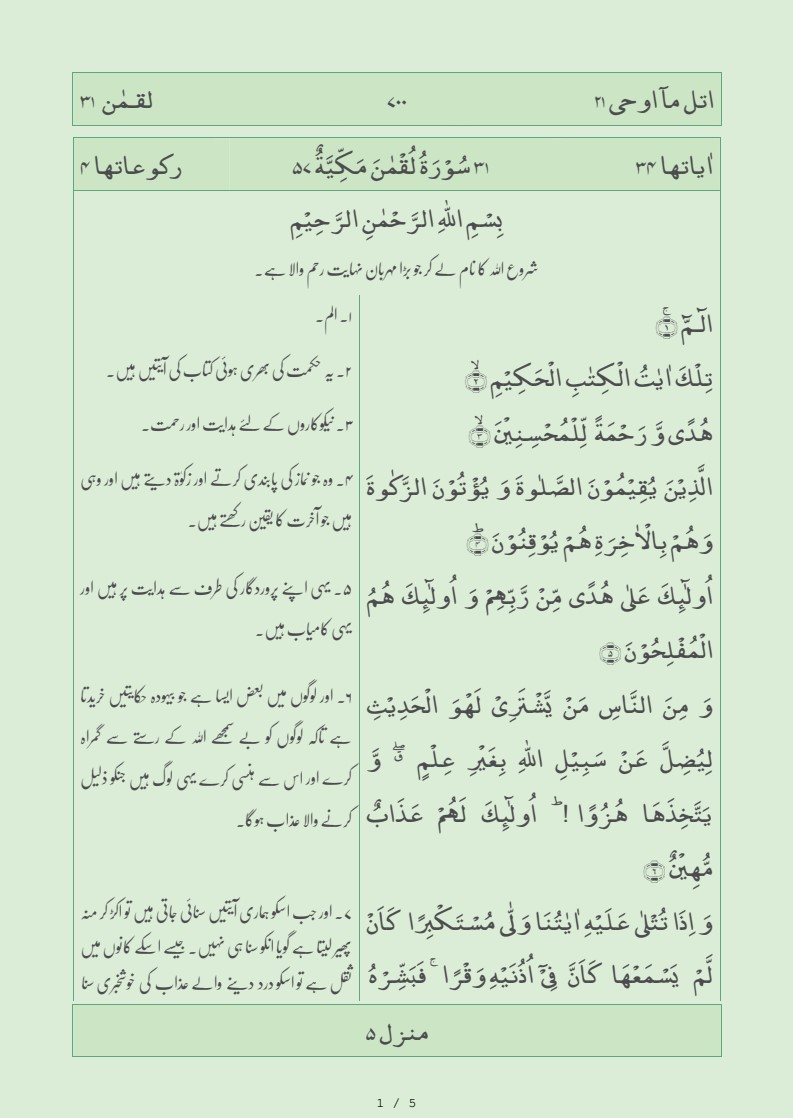 اتل مآ اوحی ۲۱
۷۰۰
لقـمٰن ۳۱
اٰیاتھا ۳۴
۳۱ سُوْرَةُ لُقْمٰنَ مَكِّيَّةٌ ۵۷
رکوعاتھا ۴
بِسْمِ اللّٰهِ الرَّحْمٰنِ الرَّحِيْمِ
شروع اللہ کا نام لے کر جو بڑا مہربان نہایت رحم والا ہے۔
الٓـمّٓ ۚ﴿۱﴾
تِلْكَ اٰيٰتُ الْكِتٰبِ الْحَكِيْمِ ۙ﴿۲﴾
هُدًى وَّ رَحْمَةً لِّلْمُحْسِنِيْنَ ۙ﴿۳﴾
الَّذِيْنَ يُقِيْمُوْنَ الصَّلٰوةَ وَ يُؤْتُوْنَ الزَّكٰوةَ
وَ هُمْ بِالْاٰخِرَةِ هُمْ يُوْقِنُوْنَ ؕ﴿۴﴾
اُولٰٓئِكَ عَلٰى هُدًى مِّنْ رَّبِّهِمْ وَ اُولٰٓئِكَ هُمُ
الْمُفْلِحُوْنَ ﴿۵﴾
وَ مِنَ النَّاسِ مَنْ يَّشْتَرِىْ لَهْوَ الْحَدِيْثِ
لِيُضِلَّ عَنْ سَبِيْلِ اللّٰهِ بِغَيْرِ عِلْمٍ ۖۗ وَّ
يَتَّخِذَهَا هُزُوًا ! ؕ اُولٰٓئِكَ لَهُمْ عَذَابٌ
مُّهِيْنٌ ﴿۶﴾
وَ اِذَا تُتْلٰى عَلَيْهِ اٰيٰتُنَا وَلّٰى مُسْتَكْبِرًا كَاَنْ
لَّمْ يَسْمَعْهَا كَاَنَّ فِىْۤ اُذُنَيْهِ وَقْرًا ۚ فَبَشِّرْهُ
۱۔ الم۔
۲۔ یہ حکمت کی بھری ہوئی کتاب کی آیتیں ہیں۔
۳۔ نیکوکاروں کے لئے ہدایت اور رحمت۔
۴۔ وہ جو نماز کی پابندی کرتے اور زکوٰۃ دیتے ہیں اور وہی
ہیں جو آخرت کا یقین رکھتے ہیں۔
۵۔ یہی اپنے پروردگار کی طرف سے ہدایت پر ہیں اور
یہی کامیاب ہیں۔
۶۔ اور لوگوں میں بعض ایسا ہے جو بیہودہ حکایتیں خریدتا
ہے تاکہ لوگوں کو بے سمجھے اللہ کے رستے سے گمراہ
کرے اور اس سے ہنسی کرے یہی لوگ ہیں جنکو ذلیل
کرنے والا عذاب ہوگا۔
۷۔ اور جب اسکو ہماری آیتیں سنائی جاتی ہیں تو اکڑ کر منہ
پھیر لیتا ہے گویا انکو سنا ہی نہیں۔ جیسے اسکے کانوں میں
ثقل ہے تو اسکو درد دینے والے عذاب کی خوشخبری سنا
منزل ۵
1 / 5